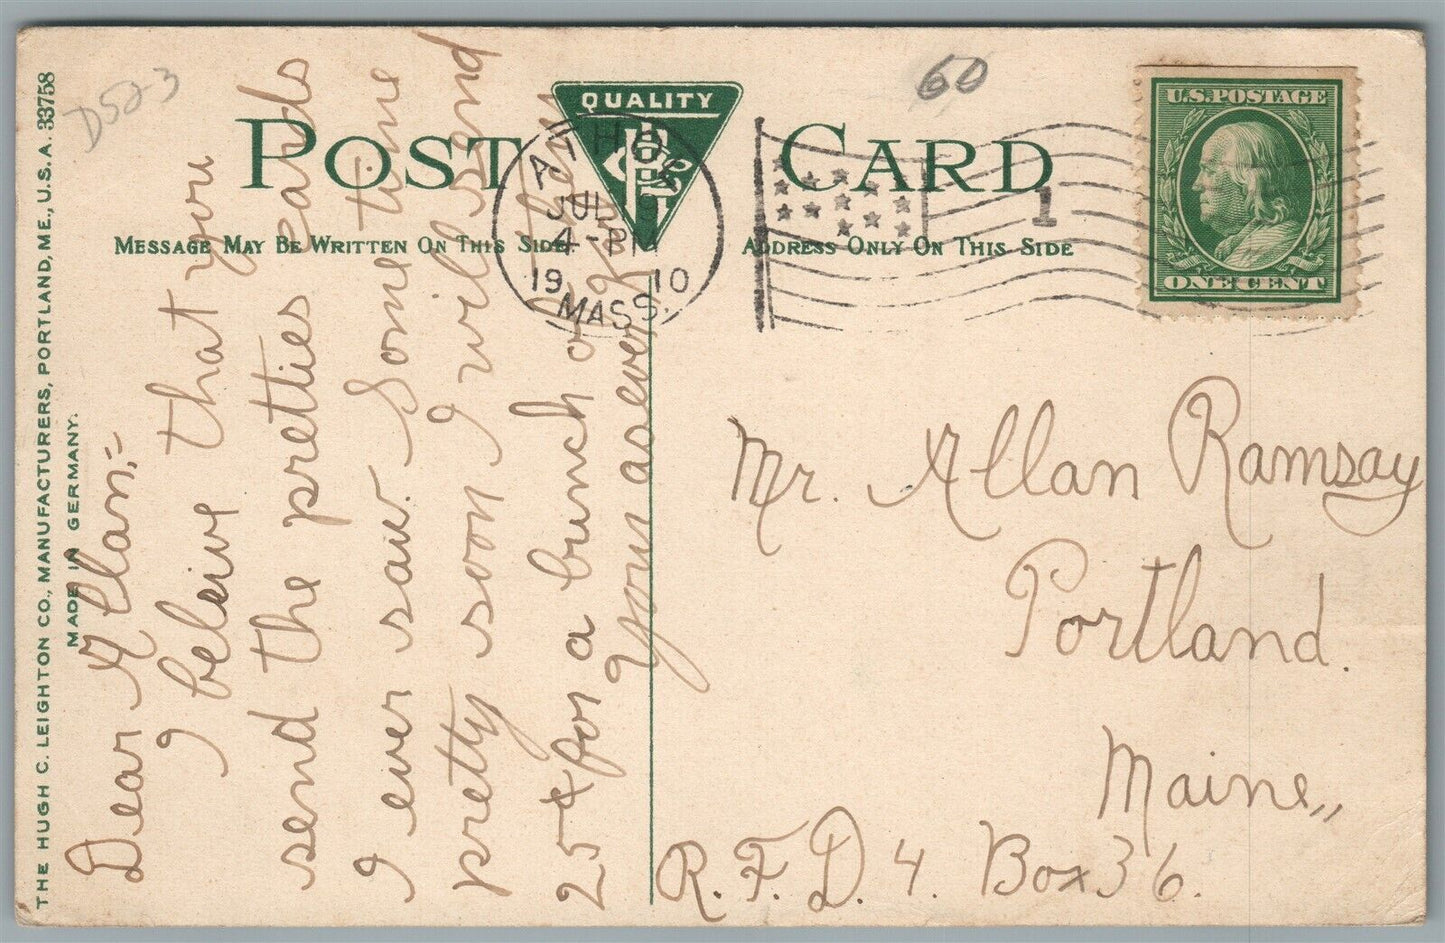 D523
60
POST CARD
QUALITY
U.S. POSTAGE
ONE CENT
ATHOL
JUL 9
4 - PM
19 10
MASS.
1
MESSAGE MAY BE WRITTEN ON THIS SIDE
ADDRESS ONLY ON THIS SIDE
THE HUGH C. LEIGHTON CO., MANUFACTURERS, PORTLAND, ME., U.S.A. 33758
MADE IN GERMANY.
Dear Allan;=
I beleive that you
send the pretties cards
I ever saw. Some time
pretty soon I will send
25¢ for a bunch of
Your as ever
Mr. Allan Ramsay
Portland.
Maine,,
R.F.D. 4. Box 36.